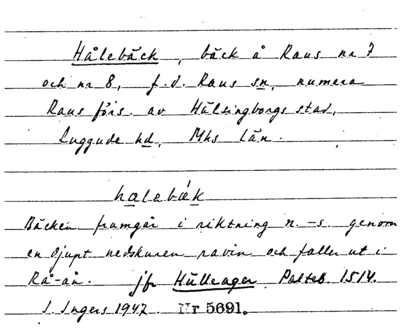 Hålebäck, bäck å Raus nr 7
och nr 8, f.d. Raus sn, numera
Raus förs. av Hälsingborgs stad,
Luggude hd, Mhs län.
halebæk
Bäcken framgår i riktning n.-s. genom
en djupt nedskuren ravin och faller ut i
Rå-ån. jfr Hälleager Palteb. 1514.
I. Ingers 1947 Nr 5691.